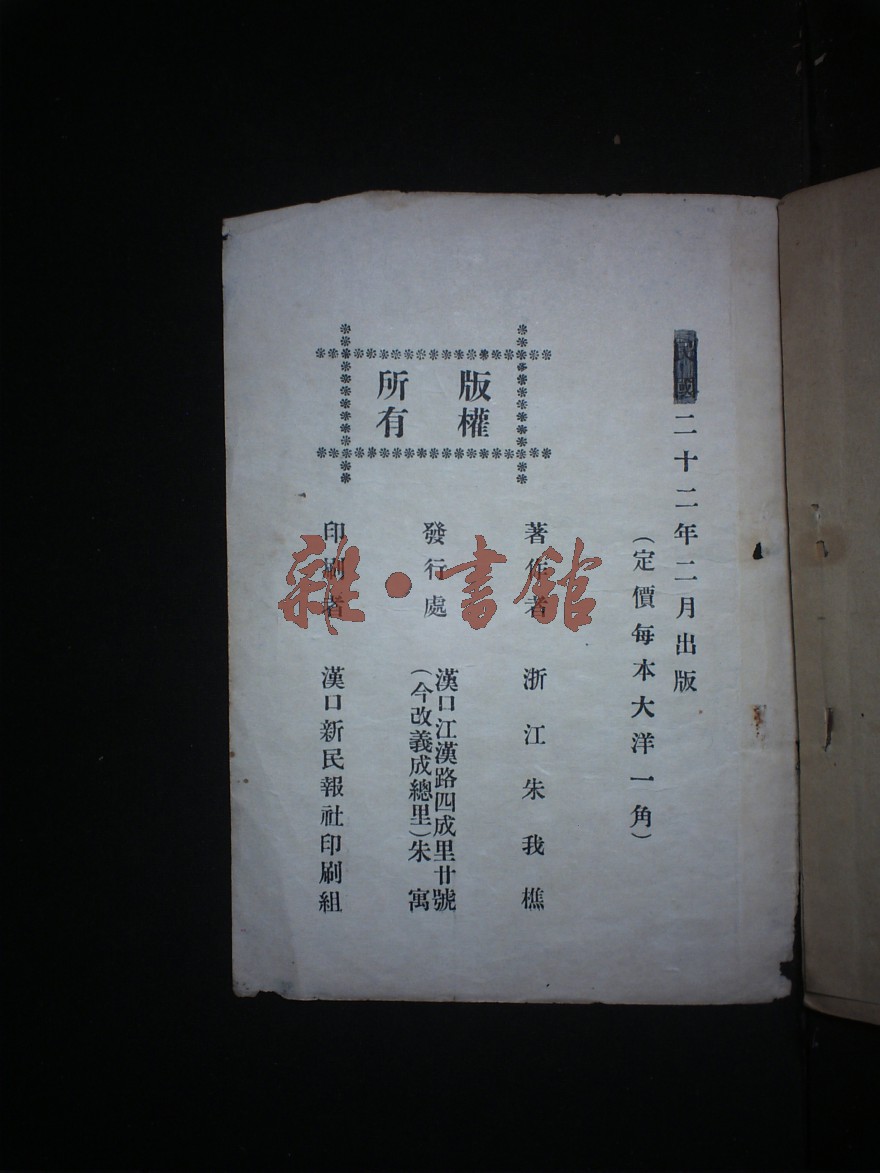 民國二十二年二月出版
(定價每本大洋一角)
版權
所有
著作者 浙江朱我樵
發行處 漢口江漢路四成里廿號
(今改義成總里)朱寓
印刷者 漢口新民報社印刷組
雜·書館